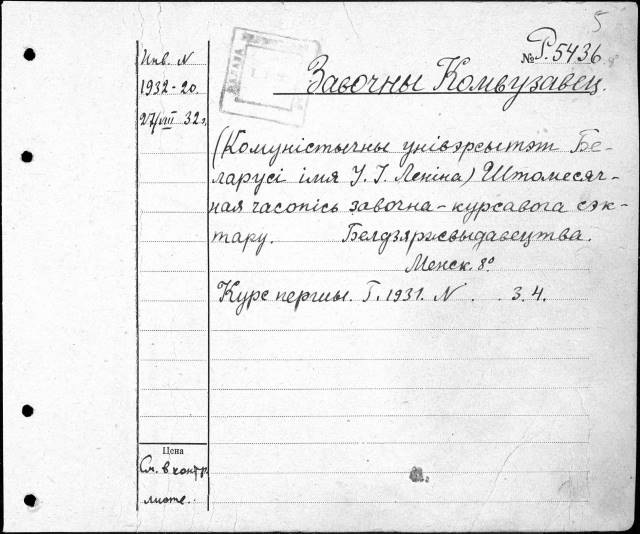 5
№ Р.5436.
Инв. N
1932-20.
27/VIII 32г.
Завочны Комвузавец.
(Комуністычны унівэрсытэт Бе-
ларусі імя У. І. Леніна) Штомесяч-
ная часопісь завочна-курсавога сэк-
тару. Белдзяржвыдавецтва.
Менск. 8º
Курс першы. Г. 1931. N . . 3. 4.
Цена
См. в контр.
листе.